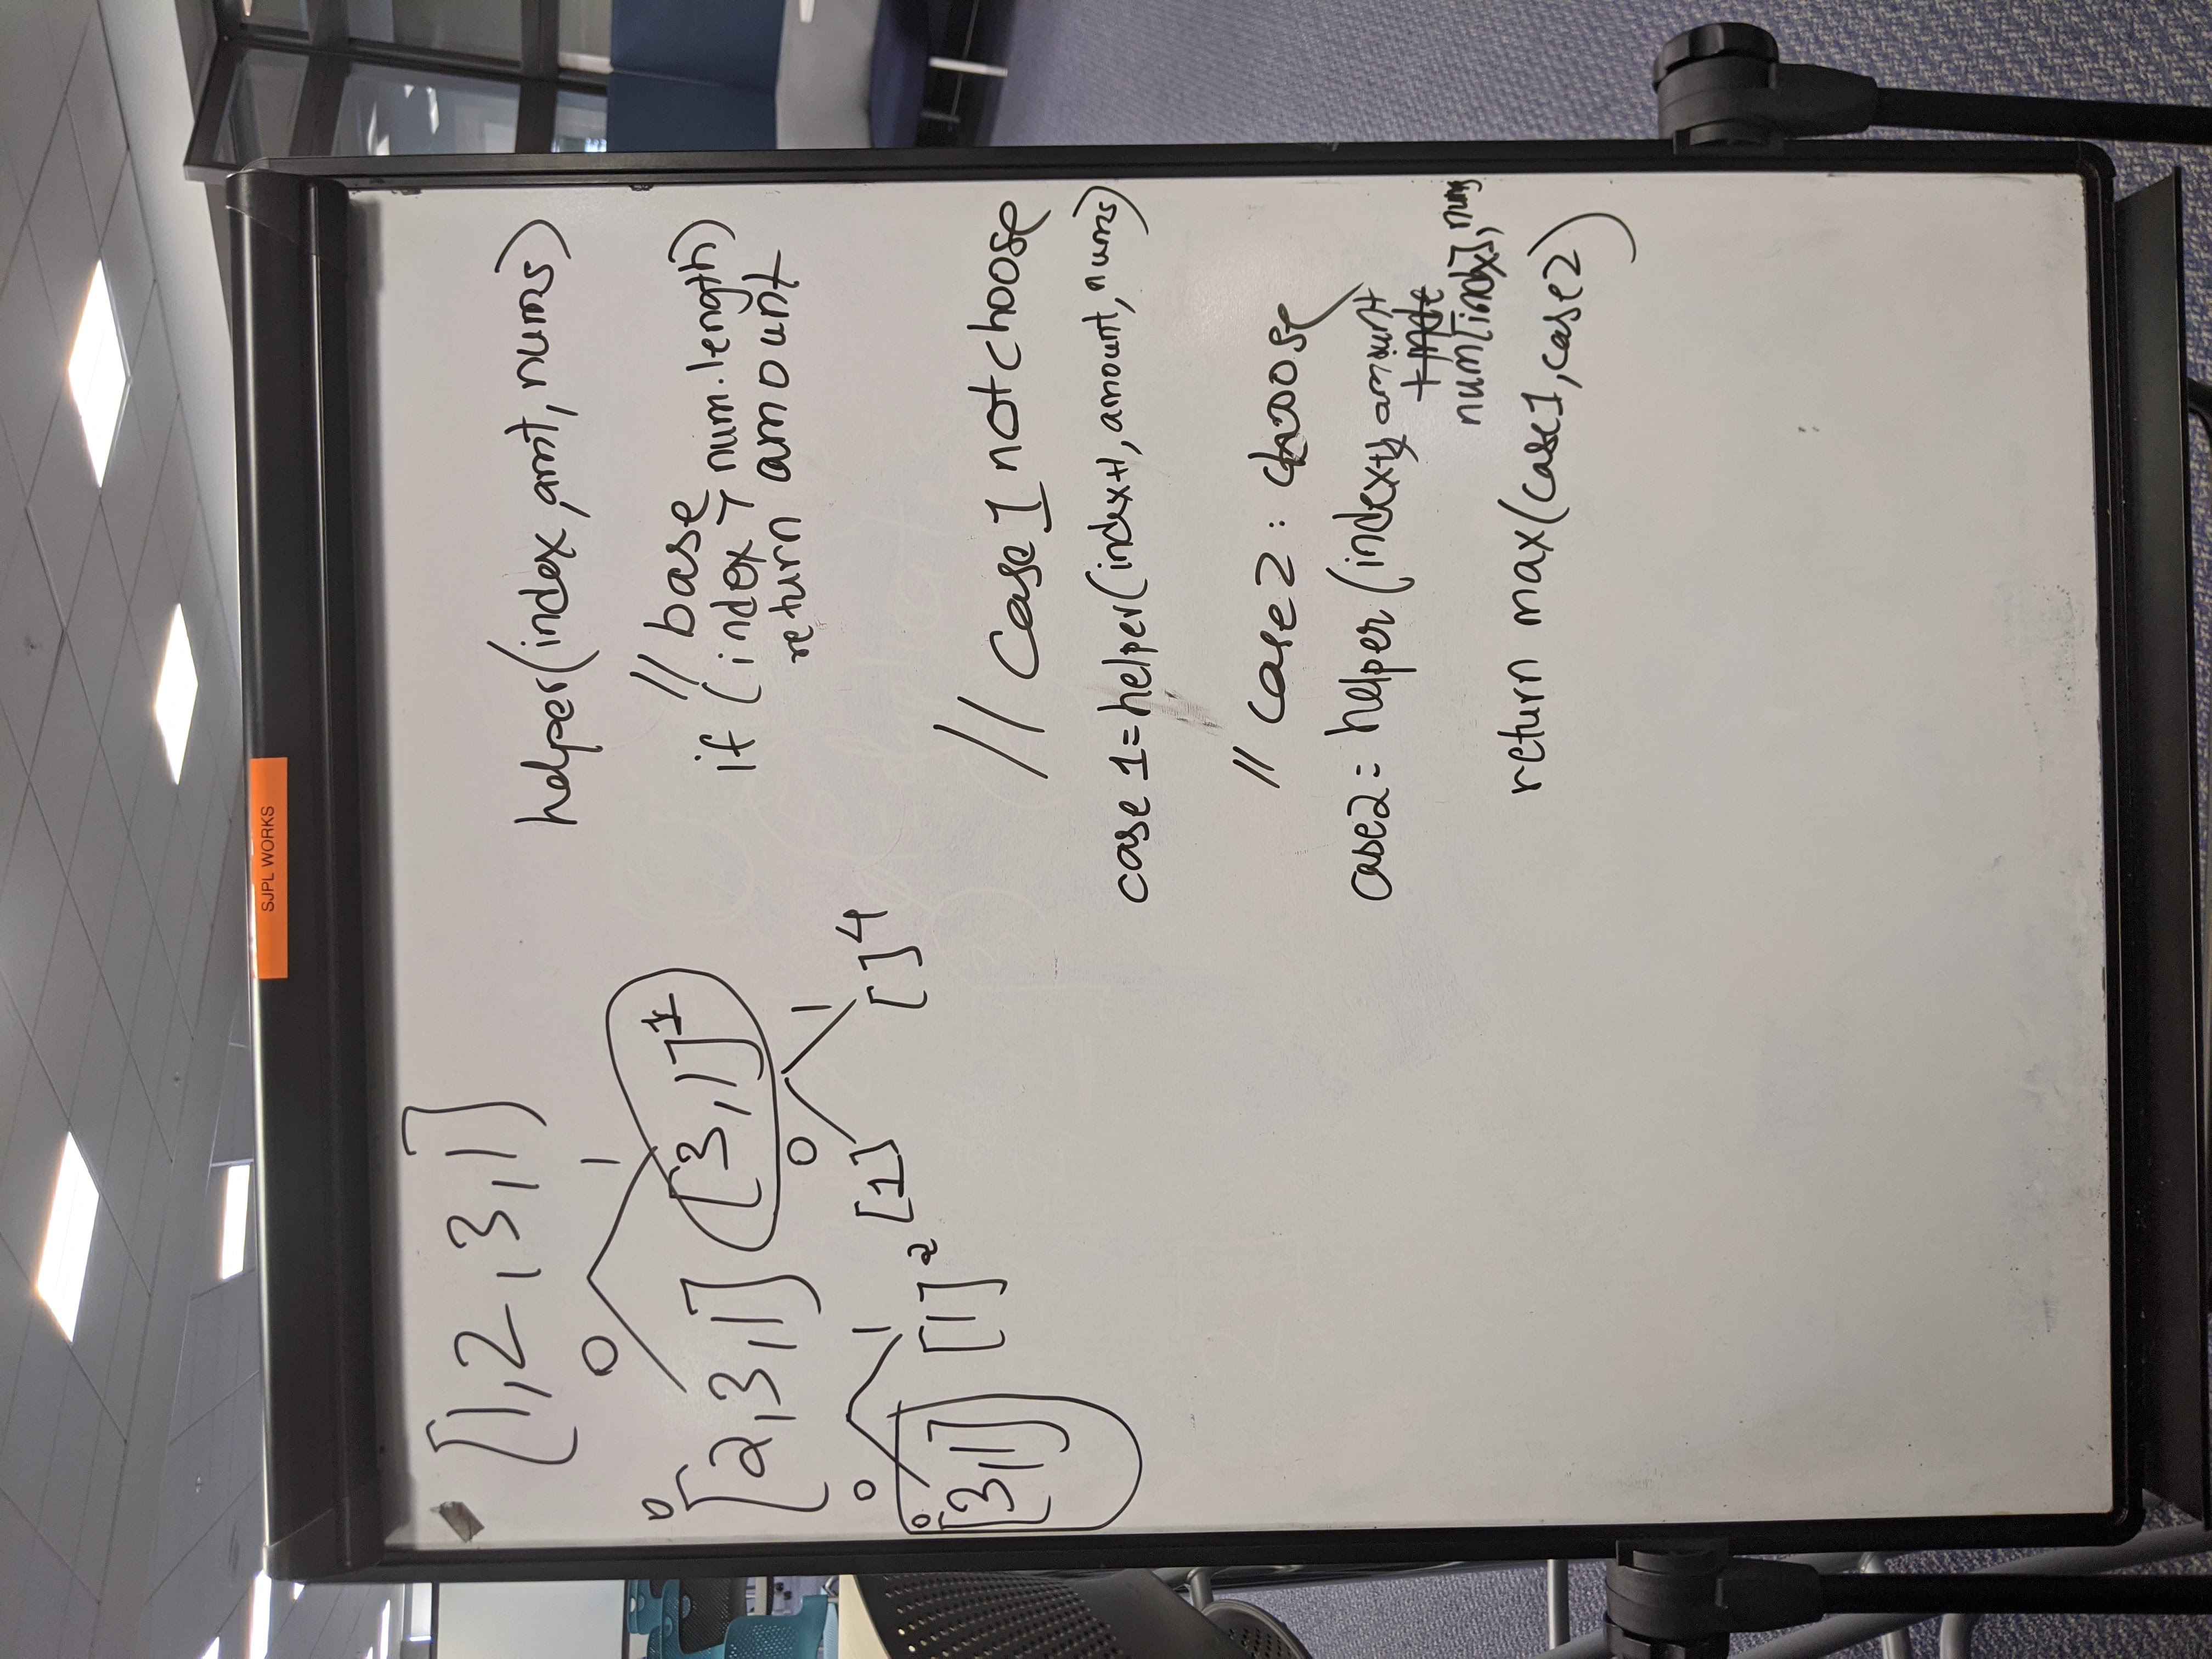 SJPL WORKS
[1,2,3,1]
0 1
0
[2,3,1] [3,1] 1
0 1
0 1
[1] [] 4
0
[3,1] [1] 2
helper(index,amt,nums)
// base
if (index > num.length)
return amount
// Case 1 not choose
case 1=helper(index+1, amount, nums)
// Case 2: choose
case2= helper (index+2, amount
+inde
num[index], nums
return max(case1,case2)